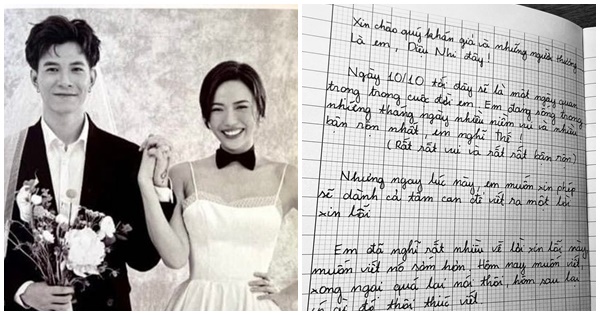 Xin chào quý khán giả và những người thương
Là em, Diệu Nhi đây!
Ngày 10/10 tới đây sẽ là một ngày quan
trọng trong cuộc đời em. Em đang sống trong
những tháng ngày nhiều niềm vui và nhiều
bận rộn nhất, em nghĩ thế!
(Rất rất vui và rất rất bận rộn)
Nhưng ngay lúc này, em muốn xin phép
sẽ dành cả tâm can để viết ra một lời
xin lỗi
Em đã nghĩ rất nhiều về lời xin lỗi này
muốn viết nó sớm hơn. Hôm nay muốn viết,
xong ngại quá lại nói thôi, hôm sau lại
có gì đó thôi thúc viết